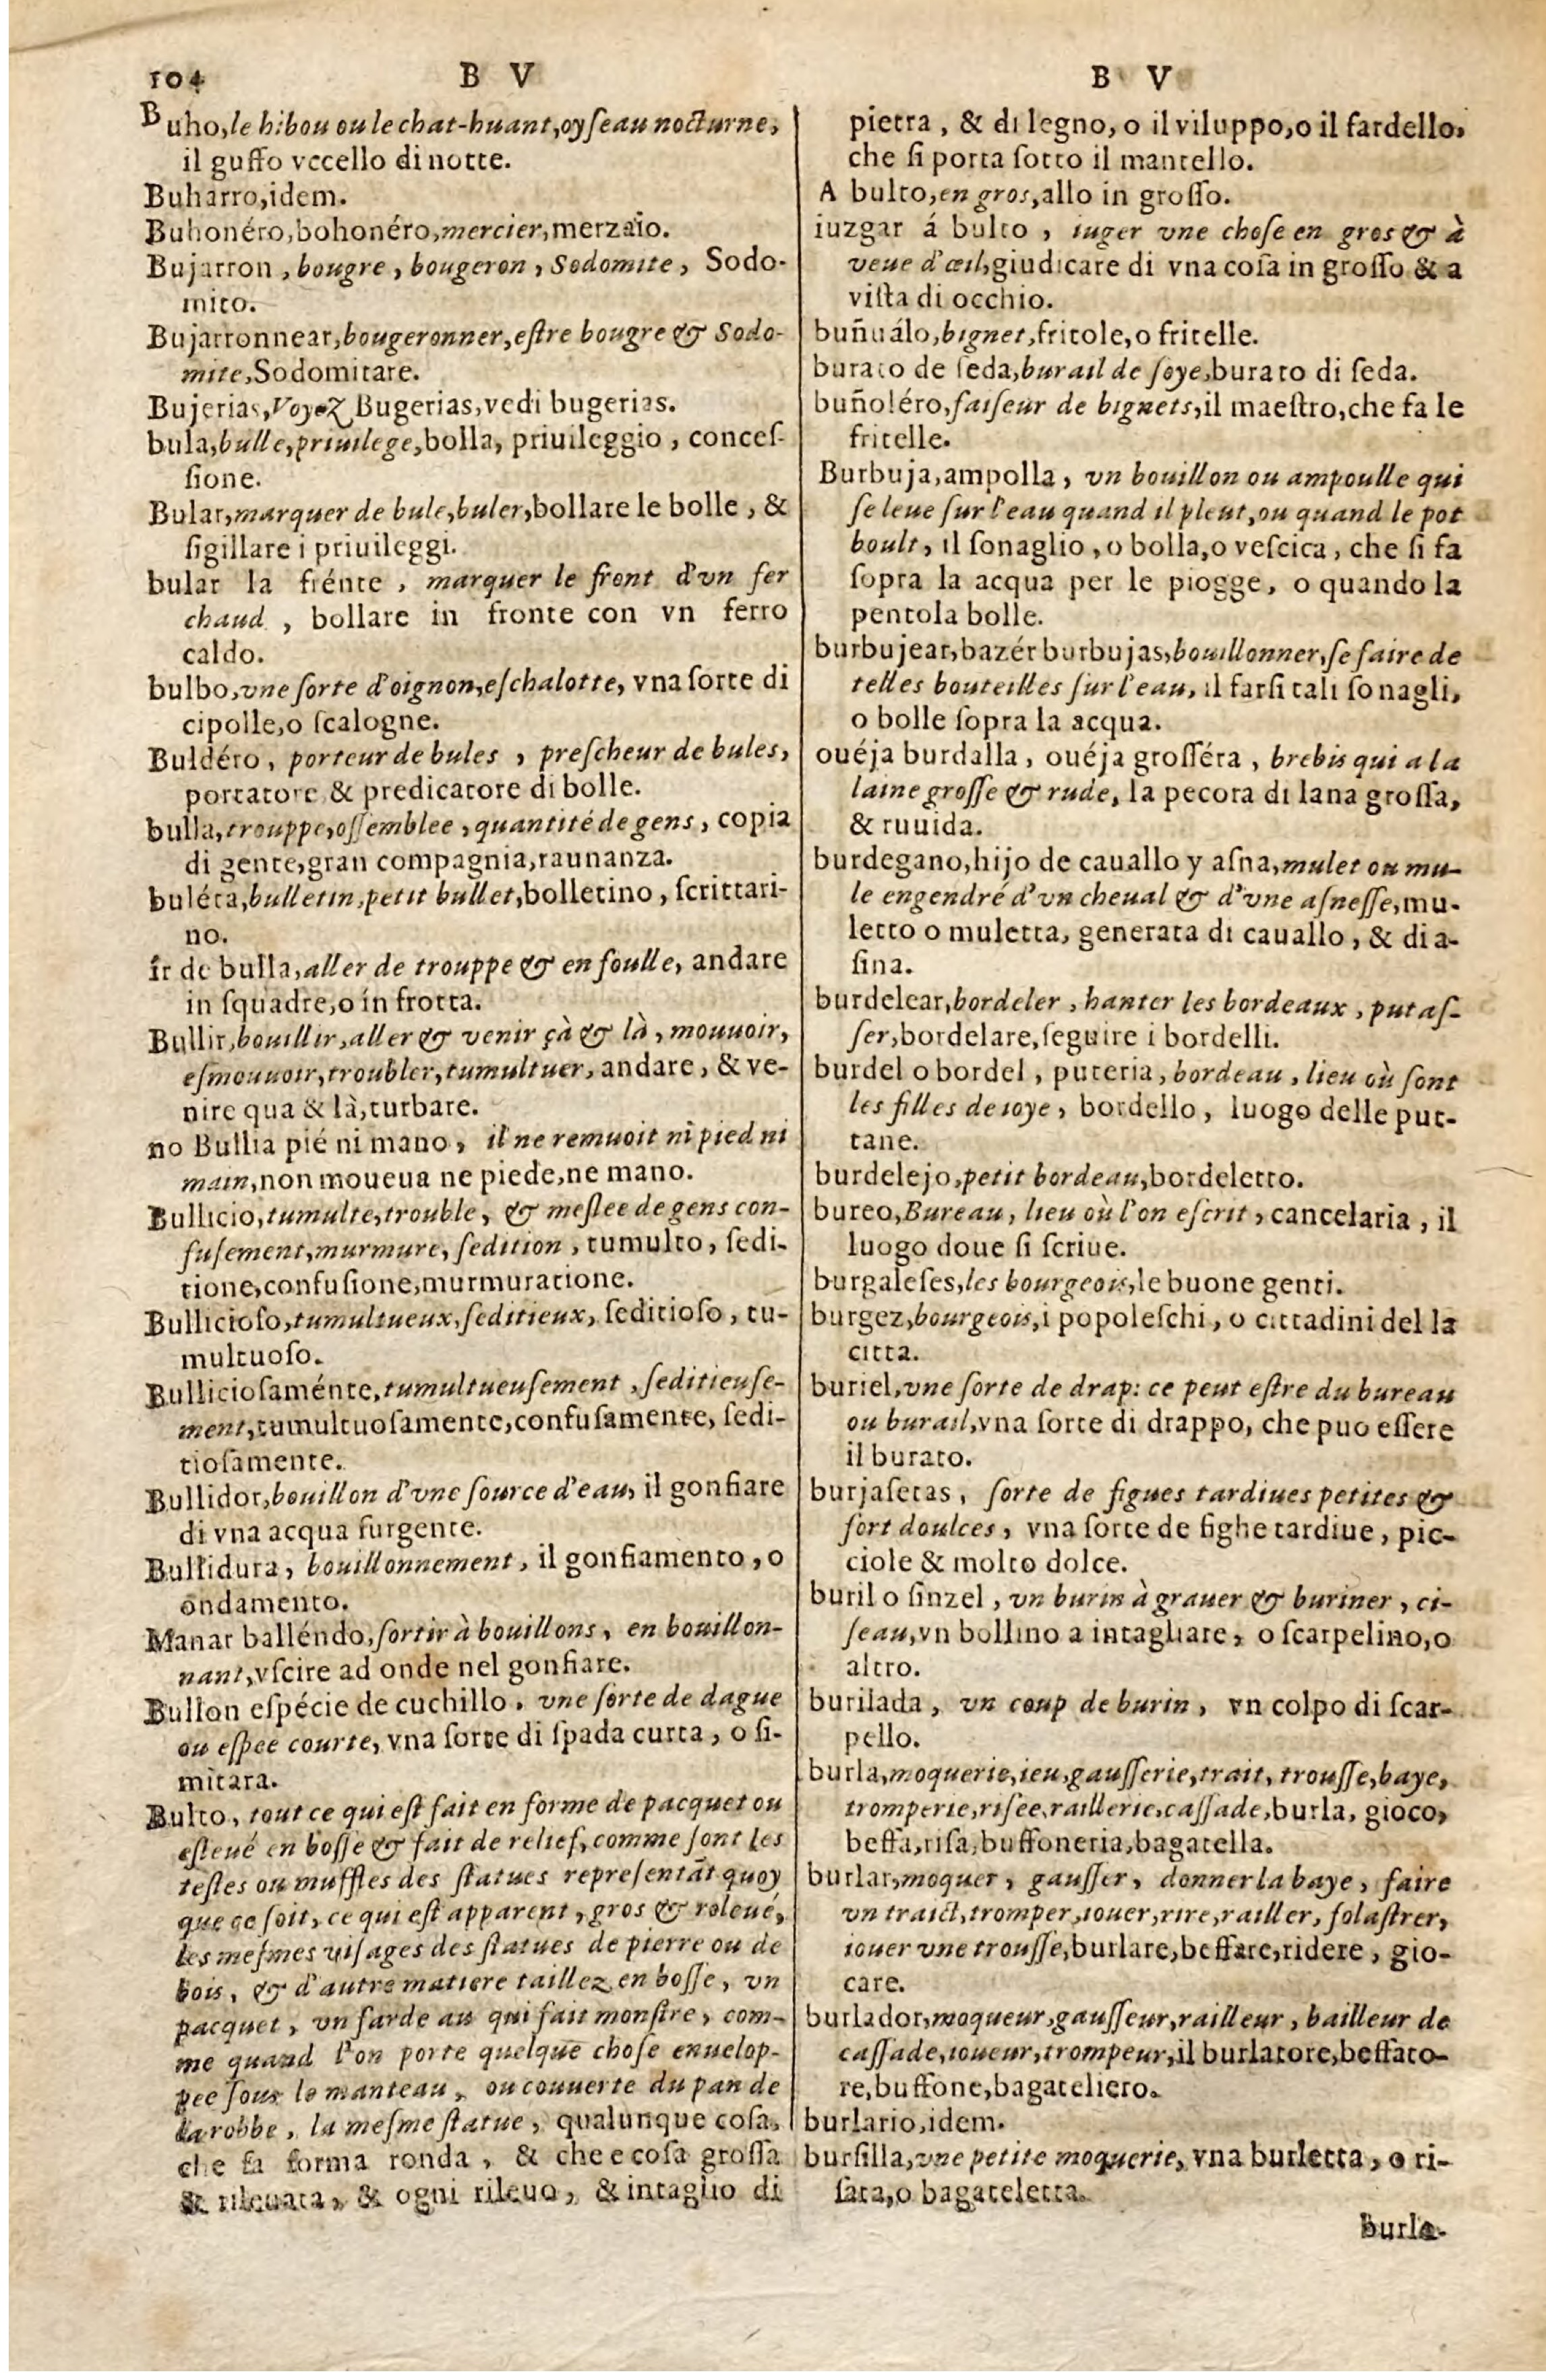 104 B V
Buho,le hibou ou le chat-huant,oyſeau nocturne,
il guffo vccello di notte.
Buharro,idem.
Buhonéro,bohonéro,mercier,merzaïo.
Bujarron, bougre, bougeron, Sodomite, Sodo-
mito.
Bujarronnear,bougeronner,eſtre bougre & Sodo-
mite,Sodomitare.
Bujerias,Voyez Bugerias,vedi bugerias.
bula,bulle,priuilege,bolla, priuileggio, conceſ-
ſione.
Bular,marquer de bule,buler,bollare le bolle, &
ſigillare i priuileggi.
bular la frénte, marquer le front d'vn fer
chaud, bollare in fronte con vn ferro
caldo.
bulbo,vne ſorte d'oignon,eſchalotte, vna ſorte di
cipolle,o ſcalogne.
Buldéro, porteur de bules, preſcheur de bules,
portatore & predicatore di bolle.
bulla,trouppe,aſſemblee, quantité de gens, copia
di gente,gran compagnia,raunanza.
buléta,bulletin,petit bullet,bolletino, ſcrittari-
no.
ir de bulla,aller de trouppe & en foulle, andare
in ſquadre,o in frotta.
Bullir,bouillir,aller & venir çà & là, mouuoir,
eſmouuoir,troubler,tumultuer, andare, & ve-
nire qua & là,turbare.
no Bullia pié ni mano, il ne remuoit ni pied ni
main,non moueua ne piede,ne mano.
Bullicio,tumulte,trouble, & meſlee de gens con-
fuſement,murmure, ſedition, tumulto, ſedi-
tione,confuſione,murmuratione.
Bullicioſo,tumultueux,ſeditieux, ſeditioſo, tu-
multuoſo.
Bullicioſaménte,tumultueuſement, ſeditieuſe-
ment,tumultuoſamente,confuſamente, ſedi-
tioſamente.
Bullidor,bouillon d'vne ſource d'eau, il gonfiare
di vna acqua ſurgente.
Bullidura, bouillonnement, il gonfiamento, o
ondamento.
Manar balléndo,ſortir à bouillons, en bouillon-
nant,vſcire ad onde nel gonfiare.
Bullon eſpécie de cuchillo, vne ſorte de dague
ou eſpee courte, vna ſorte di ſpada curta, o ſi-
mitara.
Bulto, tout ce qui eſt fait en forme de pacquet ou
eſleué en boſſe & fait de relief, comme ſont les
teſtes ou muffles des ſtatues repreſentāt quoy
que ce ſoit, ce qui eſt apparent, gros & releué,
les meſmes viſages des ſtatues de pierre ou de
bois, & d'autre matiere taillez en boſſe, vn
pacquet, vn farde au qui fait monſtre, com-
me quand l'on porte quelque choſe enuelop-
pee ſous le manteau, ou couuerte du pan de
la robbe, la meſme ſtatue, qualunque coſa,
che fa forma ronda, & che e coſa groſſa
& rileuata, & ogni rileuo, & intaglio di
B V
pietra, & di legno, o il viluppo,o il fardello,
che ſi porta ſotto il mantello.
A bulto,en gros,allo in groſſo.
iuzgar á bulto, iuger vne choſe en gros & à
veue d'œil,giudicare di vna coſa in groſſo & a
viſta di occhio.
buñuálo,bignet,fritole,o fritelle.
burato de ſeda,burail de ſoye,burato di ſeda.
buñoléro,faiſeur de bignets,il maeſtro,che fa le
fritelle.
Burbuja,ampolla, vn bouillon ou ampoulle qui
ſe leue ſur l'eau quand il pleut,ou quand le pot
boult, il ſonaglio, o bolla,o veſcica, che ſi fa
ſopra la acqua per le piogge, o quando la
pentola bolle.
burbujear,bazér burbujas,bouillonner,ſe faire de
telles bouteilles ſur l'eau, il farſi tali ſonagli,
o bolle ſopra la acqua.
ouéja burdalla, ouéja groſſéra, brebis qui a la
laine groſſe & rude, la pecora di lana groſſa,
& ruuida.
burdegano,hijo de cauallo y aſna,mulet ou mu-
le engendré d'vn cheual & d'vne aſneſſe,mu-
letto o muletta, generata di cauallo, & di a-
ſina.
burdelear,bordeler, hanter les bordeaux, putaſ-
ſer,bordelare,ſeguire i bordelli.
burdel o bordel, puteria, bordeau, lieu où ſont
les filles de ioye, bordello, luogo delle put-
tane.
burdelejo,petit bordeau,bordeletto.
bureo,Bureau, lieu où l'on eſcrit, cancelaria, il
luogo doue ſi ſcriue.
burgaleſes,les bourgeois,le buone genti.
burgez,bourgeois,i popoleſchi, o cittadini del la
citta.
buriel,vne ſorte de drap: ce peut eſtre du bureau
ou burail,vna ſorte di drappo, che puo eſſere
il burato.
burjaſetas, ſorte de figues tardiues petites &
fort doulces, vna ſorte de fighe tardiue, pic-
ciole & molto dolce.
buril o ſinzel, vn burin à grauer & buriner, ci-
ſeau,vn bollino a intagliare, o ſcarpelino,o
altro.
burilada, vn coup de burin, vn colpo di ſcar-
pello.
burla,moquerie,ieu,gauſſerie,trait, trouſſe,baye,
tromperie,riſee,raillerie,caſſade,burla, gioco,
beffa,riſa,buffoneria,bagatella.
burlar,moquer, gauſſer, donner la baye, faire
vn traict,tromper,iouer,rire,railler, folaſtrer,
iouer vne trouſſe,burlare,beffare,ridere, gio-
care.
burlador,moqueur,gauſſeur,railleur, bailleur de
caſſade,ioueur,trompeur,il burlatore,beffato-
re,buffone,bagateliero.
burlario,idem.
burſilla,vne petite moquerie, vna burletta, o ri-
ſata,o bagateletta.
Burla-